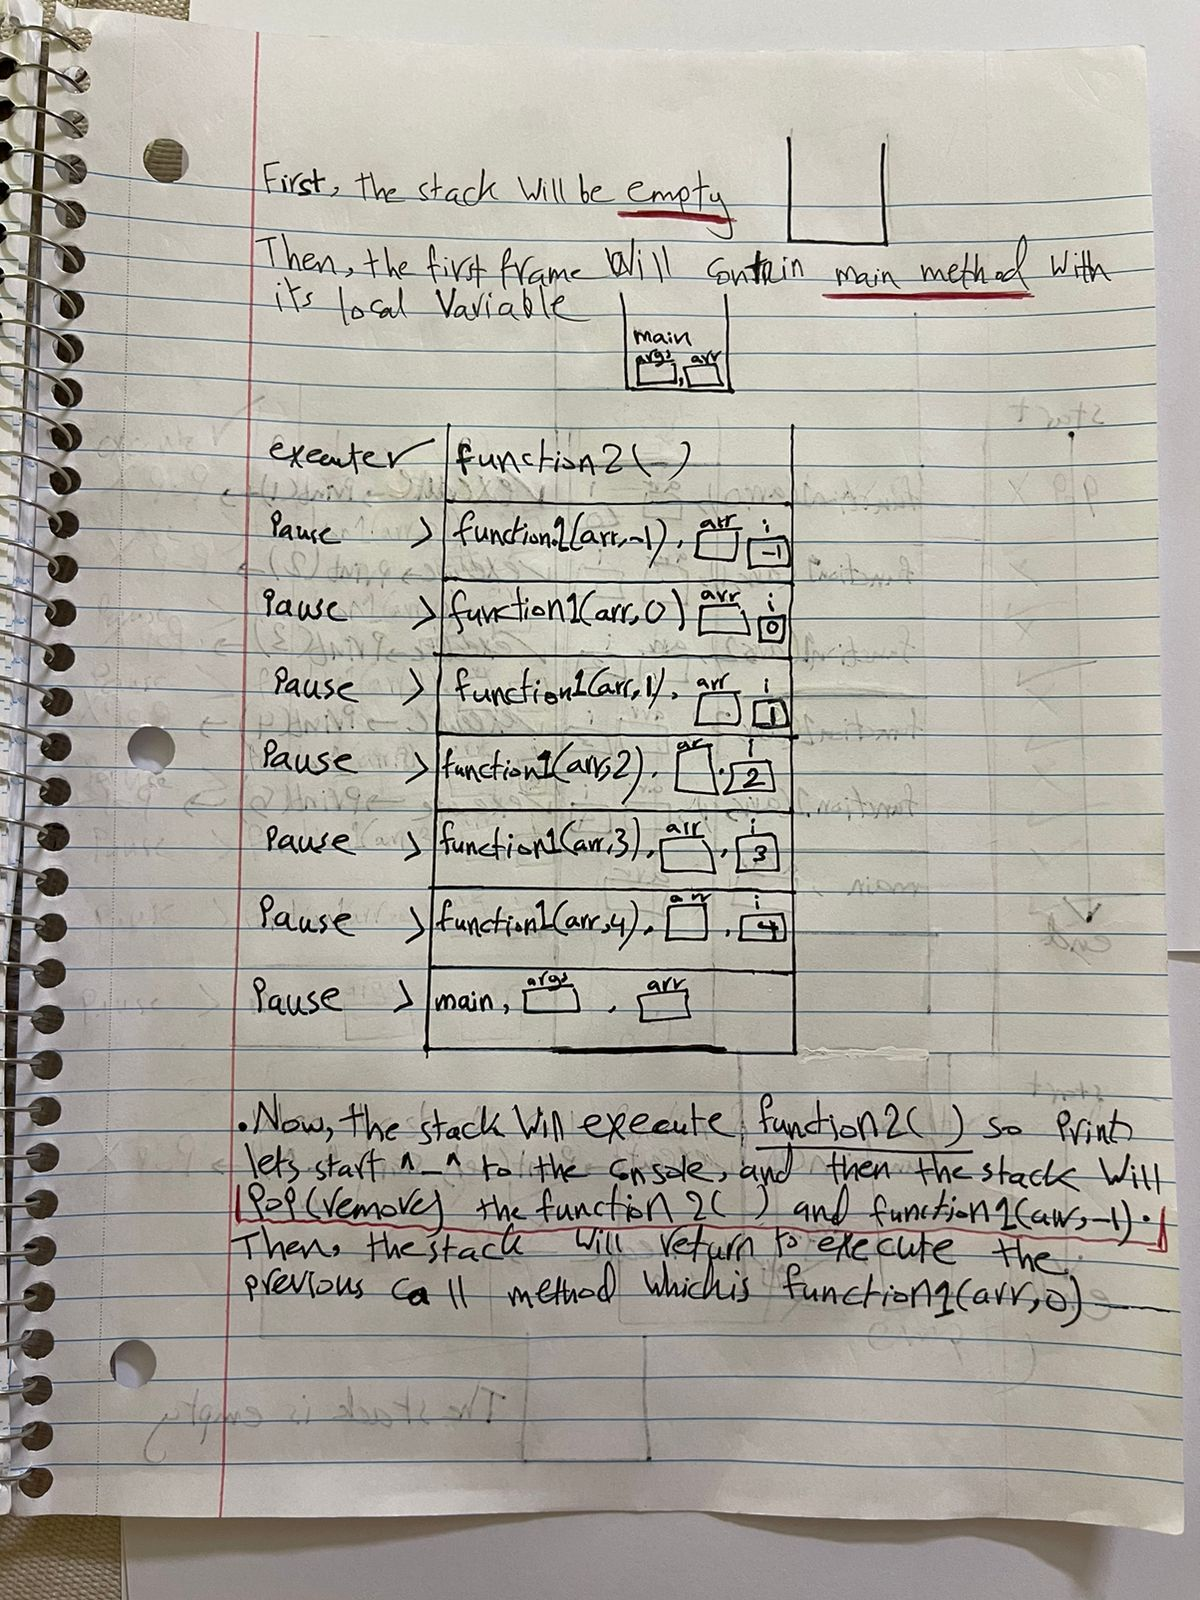 First, the stack will be empty
Then, the first frame Will contain main method with
its local Variable
main
args arr
,
executer function2(-)
Pause > function1(arr,-1), arr i -1
Pause > function1(arr,0) arr i 0
Pause > function1(arr,1), arr i 1
Pause > function1(arr,2), ar , i 2
Pause > function1(arr,3), arr , i 3
Pause > function1(arr,4), arr , i 4
Pause > main, args , arr
.Now, the stack Will execute function2( ) so Print
lets start ^_^ to the console, and then the stack Will
Pop(remove) the function2( ) and function1(arr,-1).
Then, the stack will return to execute the
previous call method which is function1(arr,0)
The stack is empty